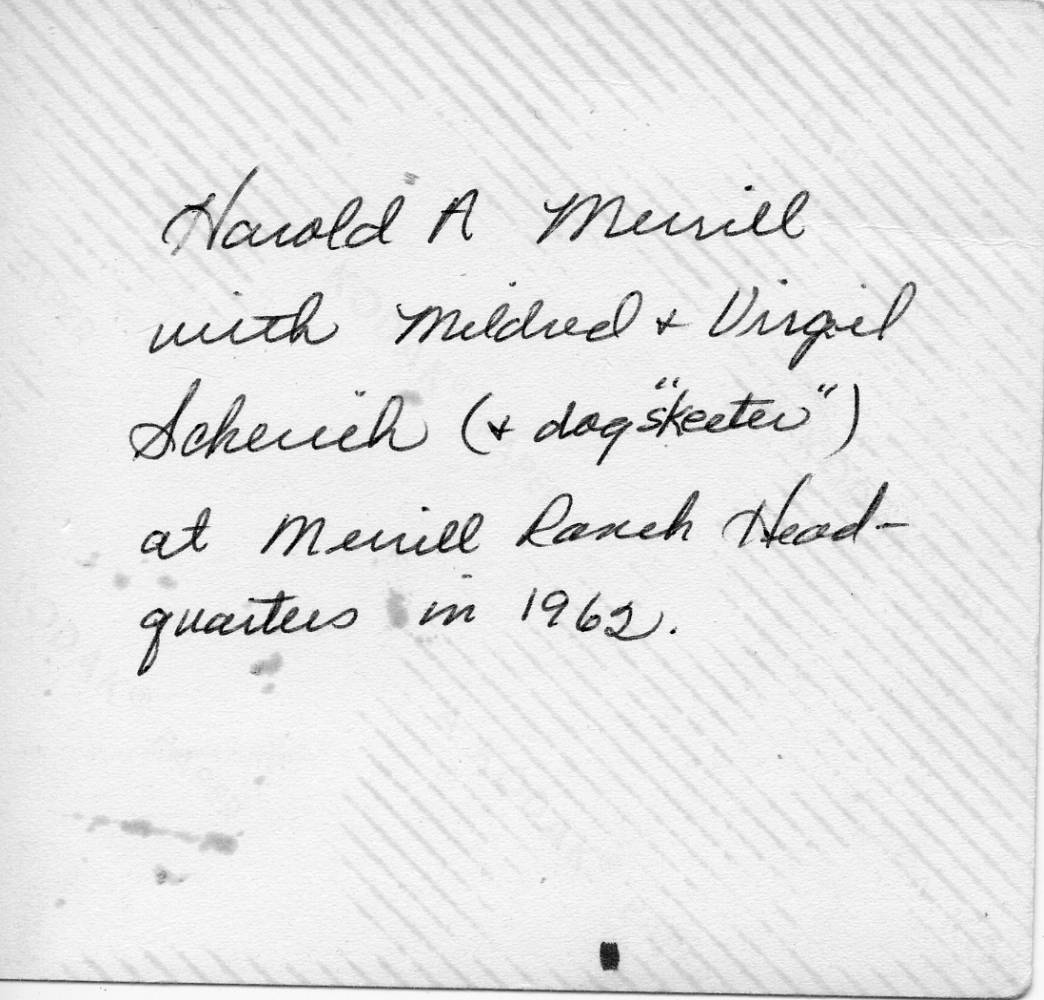 Harold A Merrill
with Mildred + Virgil
Scherich (+ dog "skeeter")
at Merrill Ranch Head-
quarters in 1962.